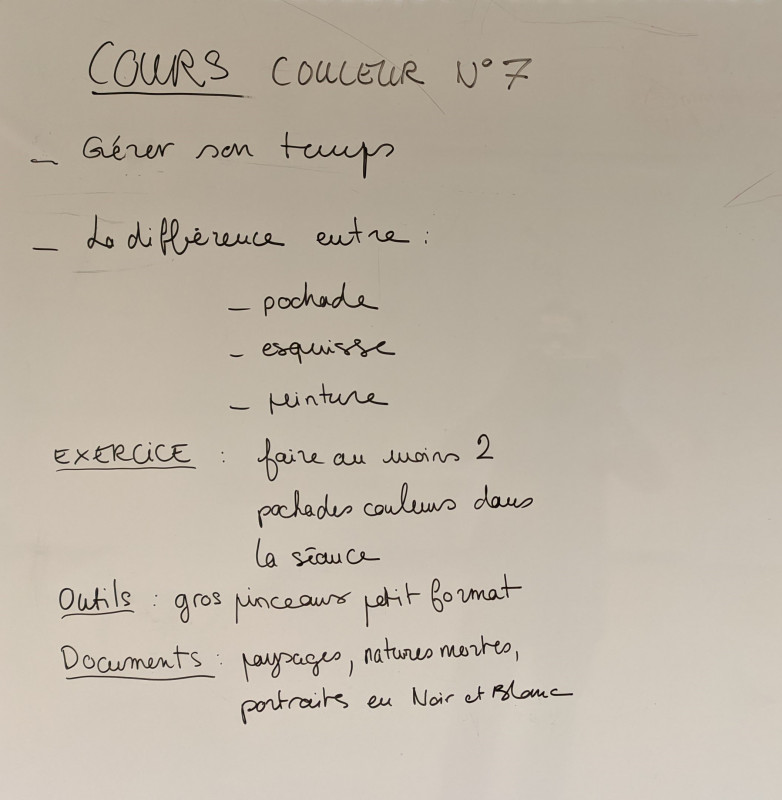 COURS COULEUR N° 7
- Gérer son temps
- La différence entre :
- pochade
- esquisse
- peinture
EXERCICE : faire au moins 2
pochades couleurs dans
la séance
Outils : gros pinceaux petit format
Documents : paysages, natures mortes,
portraits en Noir et Blanc